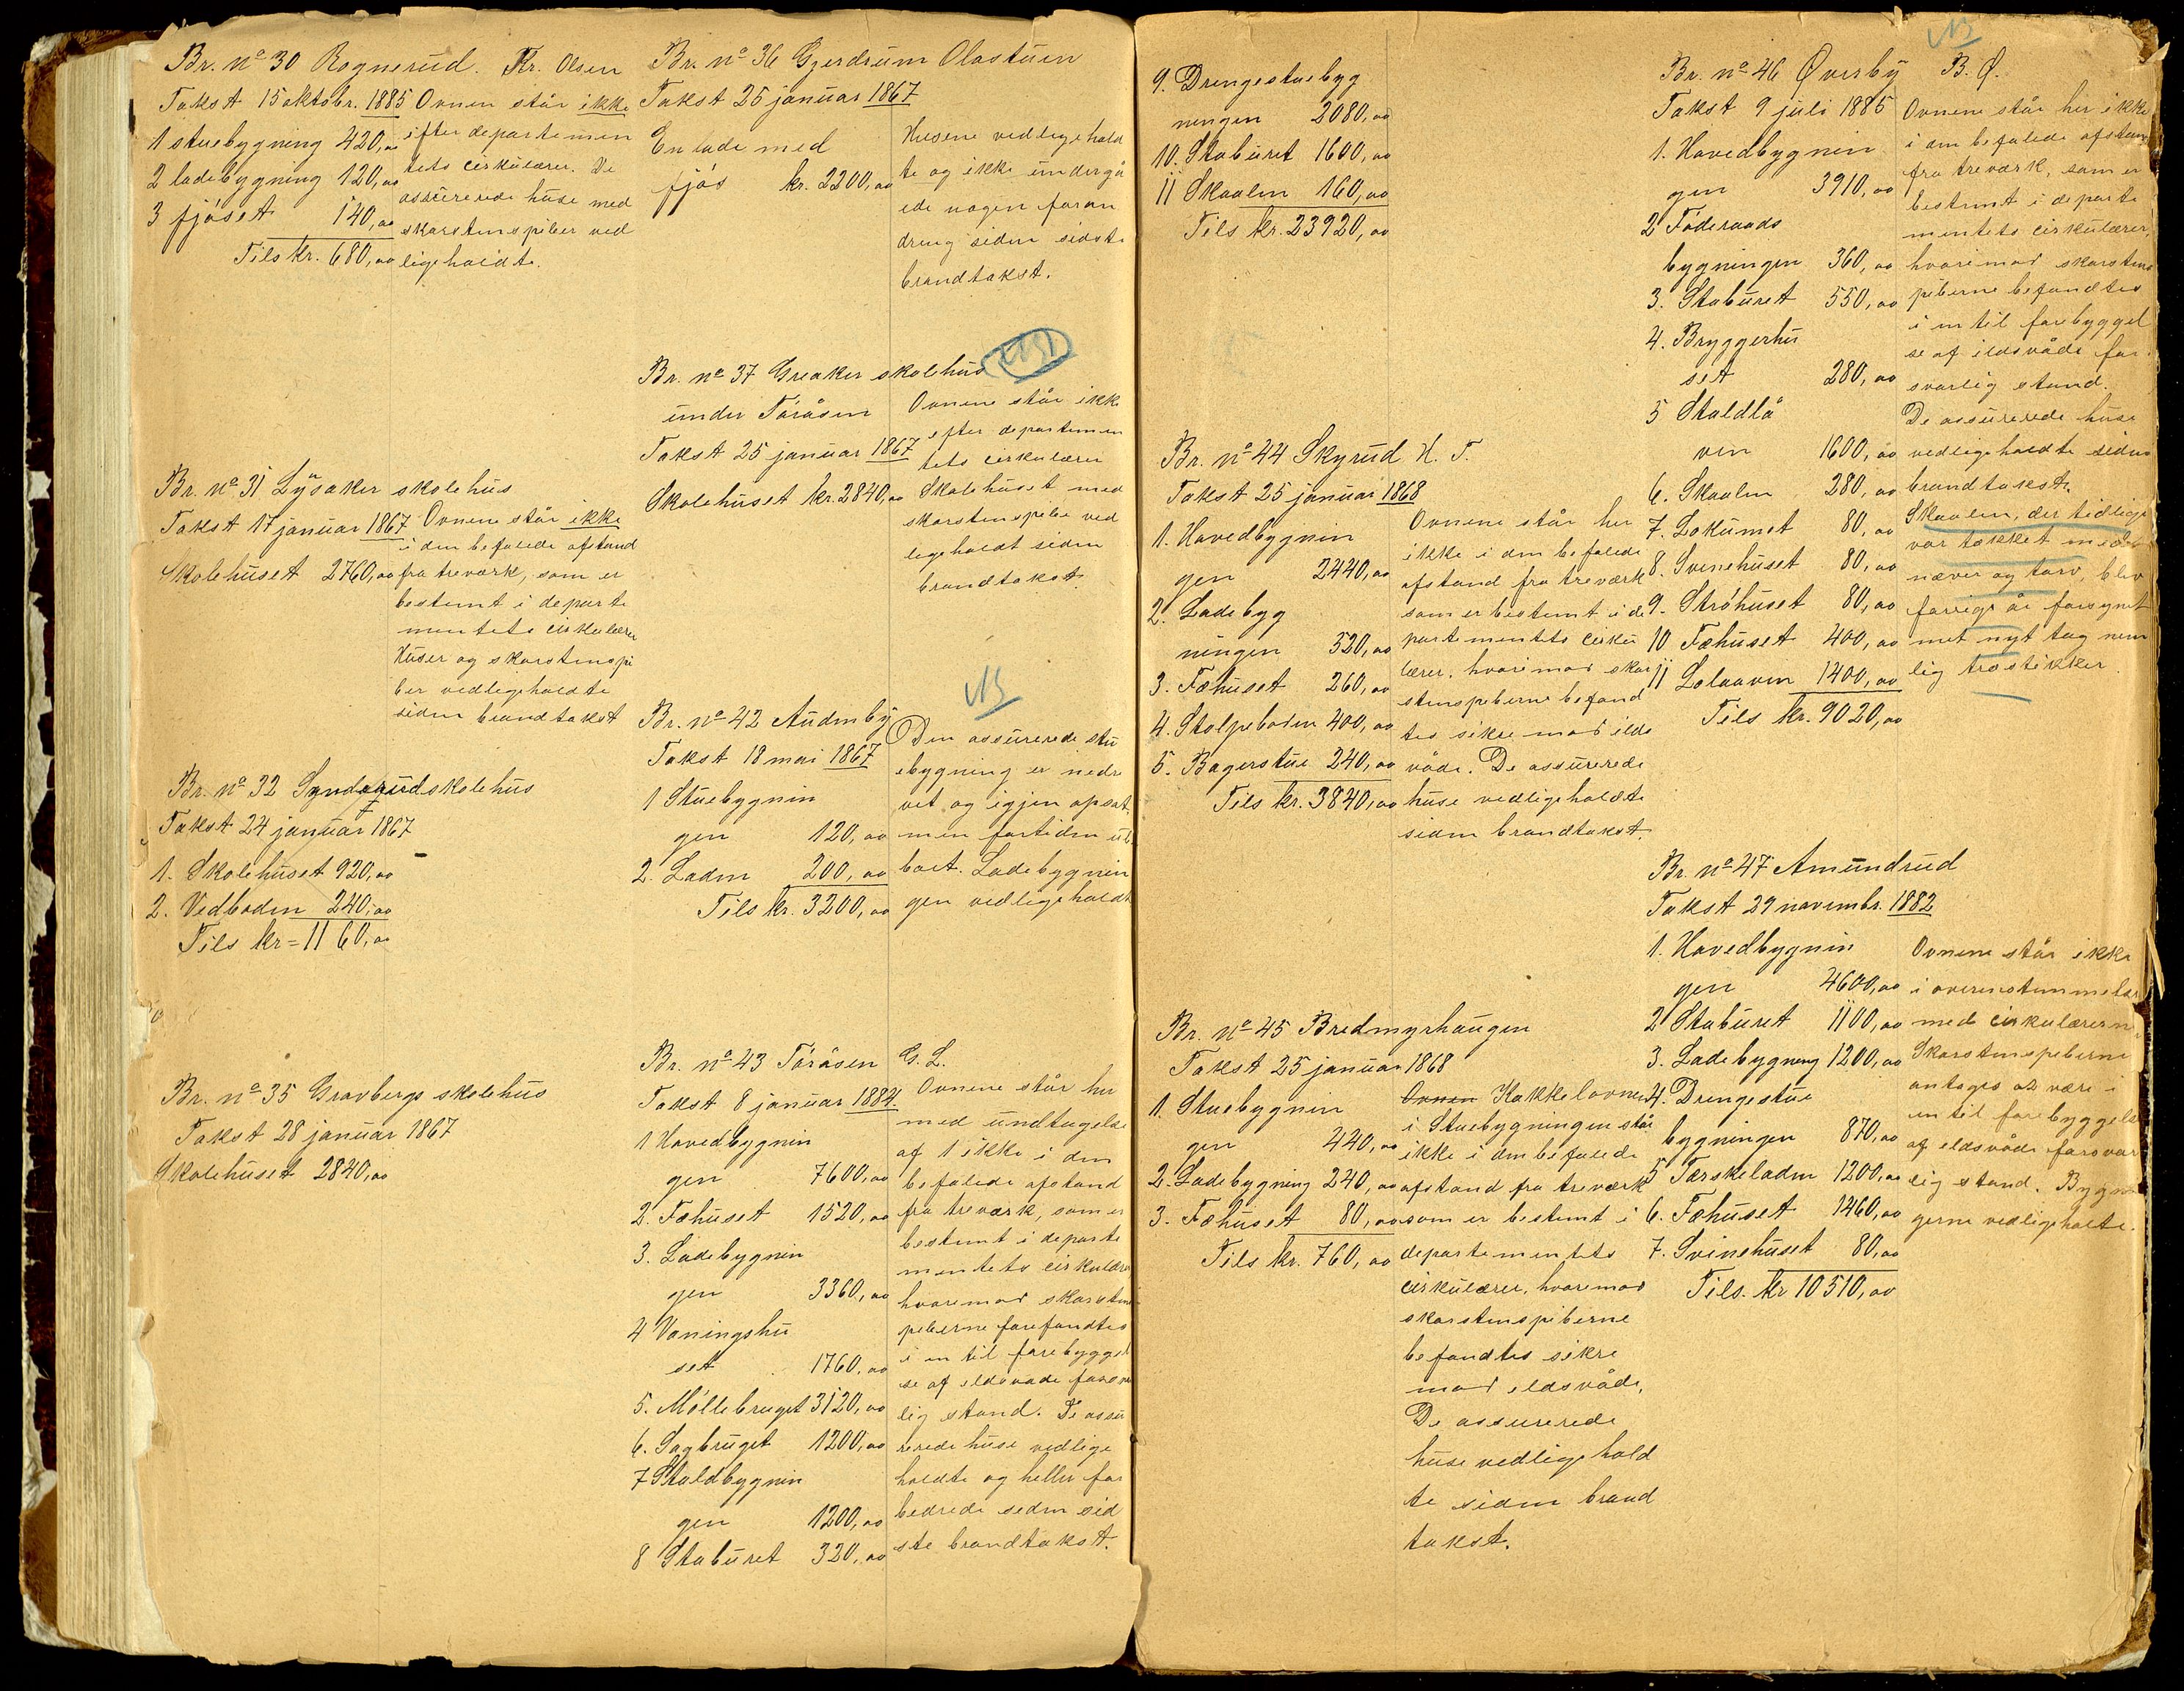 Br. nº 30 Rognerud. Kr. Olsen
Takst 15 oktobr. 1885
1 stuebygning 420,00
2 ladebygning 120,00
3 fjøset 140,00
Tils kr. 680,00
Ovnen står ikke
efter departemen
tets cirkulærer. De
assurerede huse med
skorstenspiber ved
ligeholdte.
Br. nº 31 Lysaker skolehus
Takst 17 januar 1867
Skolehuset 2760,00
Ovnene står ikke
i den befalede afstand
fra treværk, som er
bestemt i departe
mentets cirkulærer
Huser og skorstenspi
ber vedligeholdte
siden brandtakst
Br. nº 32 skolehus
Takst 24 januar 1867
1. Skolehuset 920,00
2. Vedboden 240,00
Tils kr = 1160,00
Br. nº 35 Gravbergs skolehus
Takst 28 januar 1867
Skolehuset 2840,00
Br. nº 36 Gjerdrum Olastuen
Takst 25 januar 1867
En lade med
fjøs kr. 2200,00
Husene vedligehold
te og ikke undergå
ede nogen foran
dring siden sidste
brandtakst.
Br. nº 37 Greaker skolehus NB
under Tøråsen
Takst 25 januar 1867
Skolehuset kr. 2840,00
Ovnene står ikke
efter departemen
tets cirkulærer
Skolehuset med
skorstenspibe ved
ligeholdt siden
brandtakst
NB
Br. nº 42 Audenby
Takst 18 mai 1867
1 Stuebygnin
gen 120,00
2. Laden 200,00
Tils kr. 3200,00
Den assurerede stu
ebygning er nedre
vet og igjen opsat,
men fortiden ube
boet. Ladebygnin
gen vedligeholdt
Br. nº 43 Tøråsen G. L.
Takst 8 januar 1884.
1 Hovedbygnin
gen 7600,00
2. Fæhuset 1520,00
3. Ladebygnin
gen 3360,00
4 Våningshu
set 1760,00
5. Møllebruget 3120,00
6. Sagbruget 1200,00
7 Staldbygnin
gen 1200,00
8 Staburet 320,00
Ovnene står her
med undtagelse
af 1 ikke i den
befalede afstand
fra treværk, som er
bestemt i departe
mentets cirkulærer
hvorimod skorsten
piberne forefandtes
i en til forebyggel
se af ildsvåde forsvar
lig stand. De assu
rerede huse vedlige
holdte og heller for
bedrede seden sid
ste brandtakst.
9. Drengestuebyg
ningen 2080,00
10. Staburet 1600,00
11 Skaalen 160,00
Tils kr. 23920,00
Br. nº 44 Skyrud H. T.
Takst 25 januar 1868
1. Hovedbygnin
gen 2440,00
2. Ladebyg
ningen 520,00
3. Fæhuset 260,00
4. Stolpeboden 400,00
5. Bagerstue 240,00
Tils kr. 3840,00
Ovnene står her
ikke i den befalede
afstand fra treværk
som er bestemt i de
partementets cirku
lærer, hvorimod skor
stenspiberne befand
tes sikre mod ilds
våde. De assurerede
huse vedligeholdte
siden brandtakst.
Br. nº 45 Bredmyrhaugen
Takst 25 januar 1868
1. Stuebygnin
gen 440,00
2. Ladebygning 240,00
3. Fæhuset 80,00
Tils kr. 760,00
Ovnen Kakkelovnen
i Stuebygningen står
ikke i den befalede
afstand fra treværk
som er bestemt i
departementets
cirkulærer, hvorimod
skorstenspiberne
befandtes sikre
mod ildsvåde.
De assurerede
huse vedligehold
te siden brand
takst.
NB
Br. nº 46 Øverby B. Ø.
Takst 9 juli 1885
1. Hovedbygnin
gen 3910,00
2 Føderaads
bygningen 360,00
3. Staburet 550,00
4. Bryggerhu
set 280,00
5 Staldlå
ven 1600,00
6. Skaalen 280,00
7. Lokumet 80,00
8. Svinehuset 80,00
9. Strøhuset 80,00
10 Fæhuset 400,00
11 Lolaaven 1400,00
Tils kr. 9020,00
Ovnene står her ikke
i den befalede afstand
fra treværk, som er
bestemt i departe
mentets cirkulærer,
hvorimod skorstens
piberne befandtes
i en til forebyggel
se af ildsvåde for
svarlig stand.
De assurerede huse
vedligeholdte siden
brandtakst.
Skaalen, der tidlige
var tækket med
næver og torv, blev
forrige år forsynet
met nyt tag nem
lig træstikker.
Br nº 47 Amundrud
Takst 29 novembr. 1882
1. Hovedbygnin
gen 4600,00
2 Staburet 1100,00
3. Ladebygning 1200,00
4. Drengestue
bygningen 870,00
5 Tærskeladen 1200,00
6. Fæhuset 1460,00
7. Svinehuset 80,00
Tils. kr 10510,00
Ovnene står ikke
i overenstemmelse
med cirkulærerne.
Skorstenspiberne
antages at være i
en til forebyggelse
af eldsvåde forsvar
lig stand. Bygnin
gerne vedligeholte.